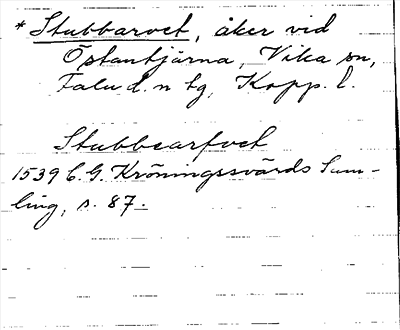 * Stubbarvet, åker vid
Östantjärna, Vika sn,
Falu d. n tg, Kopp. l.
Stubbearfvet
1539 C. G. Kröningssvärds Sam-
ling, s. 87.